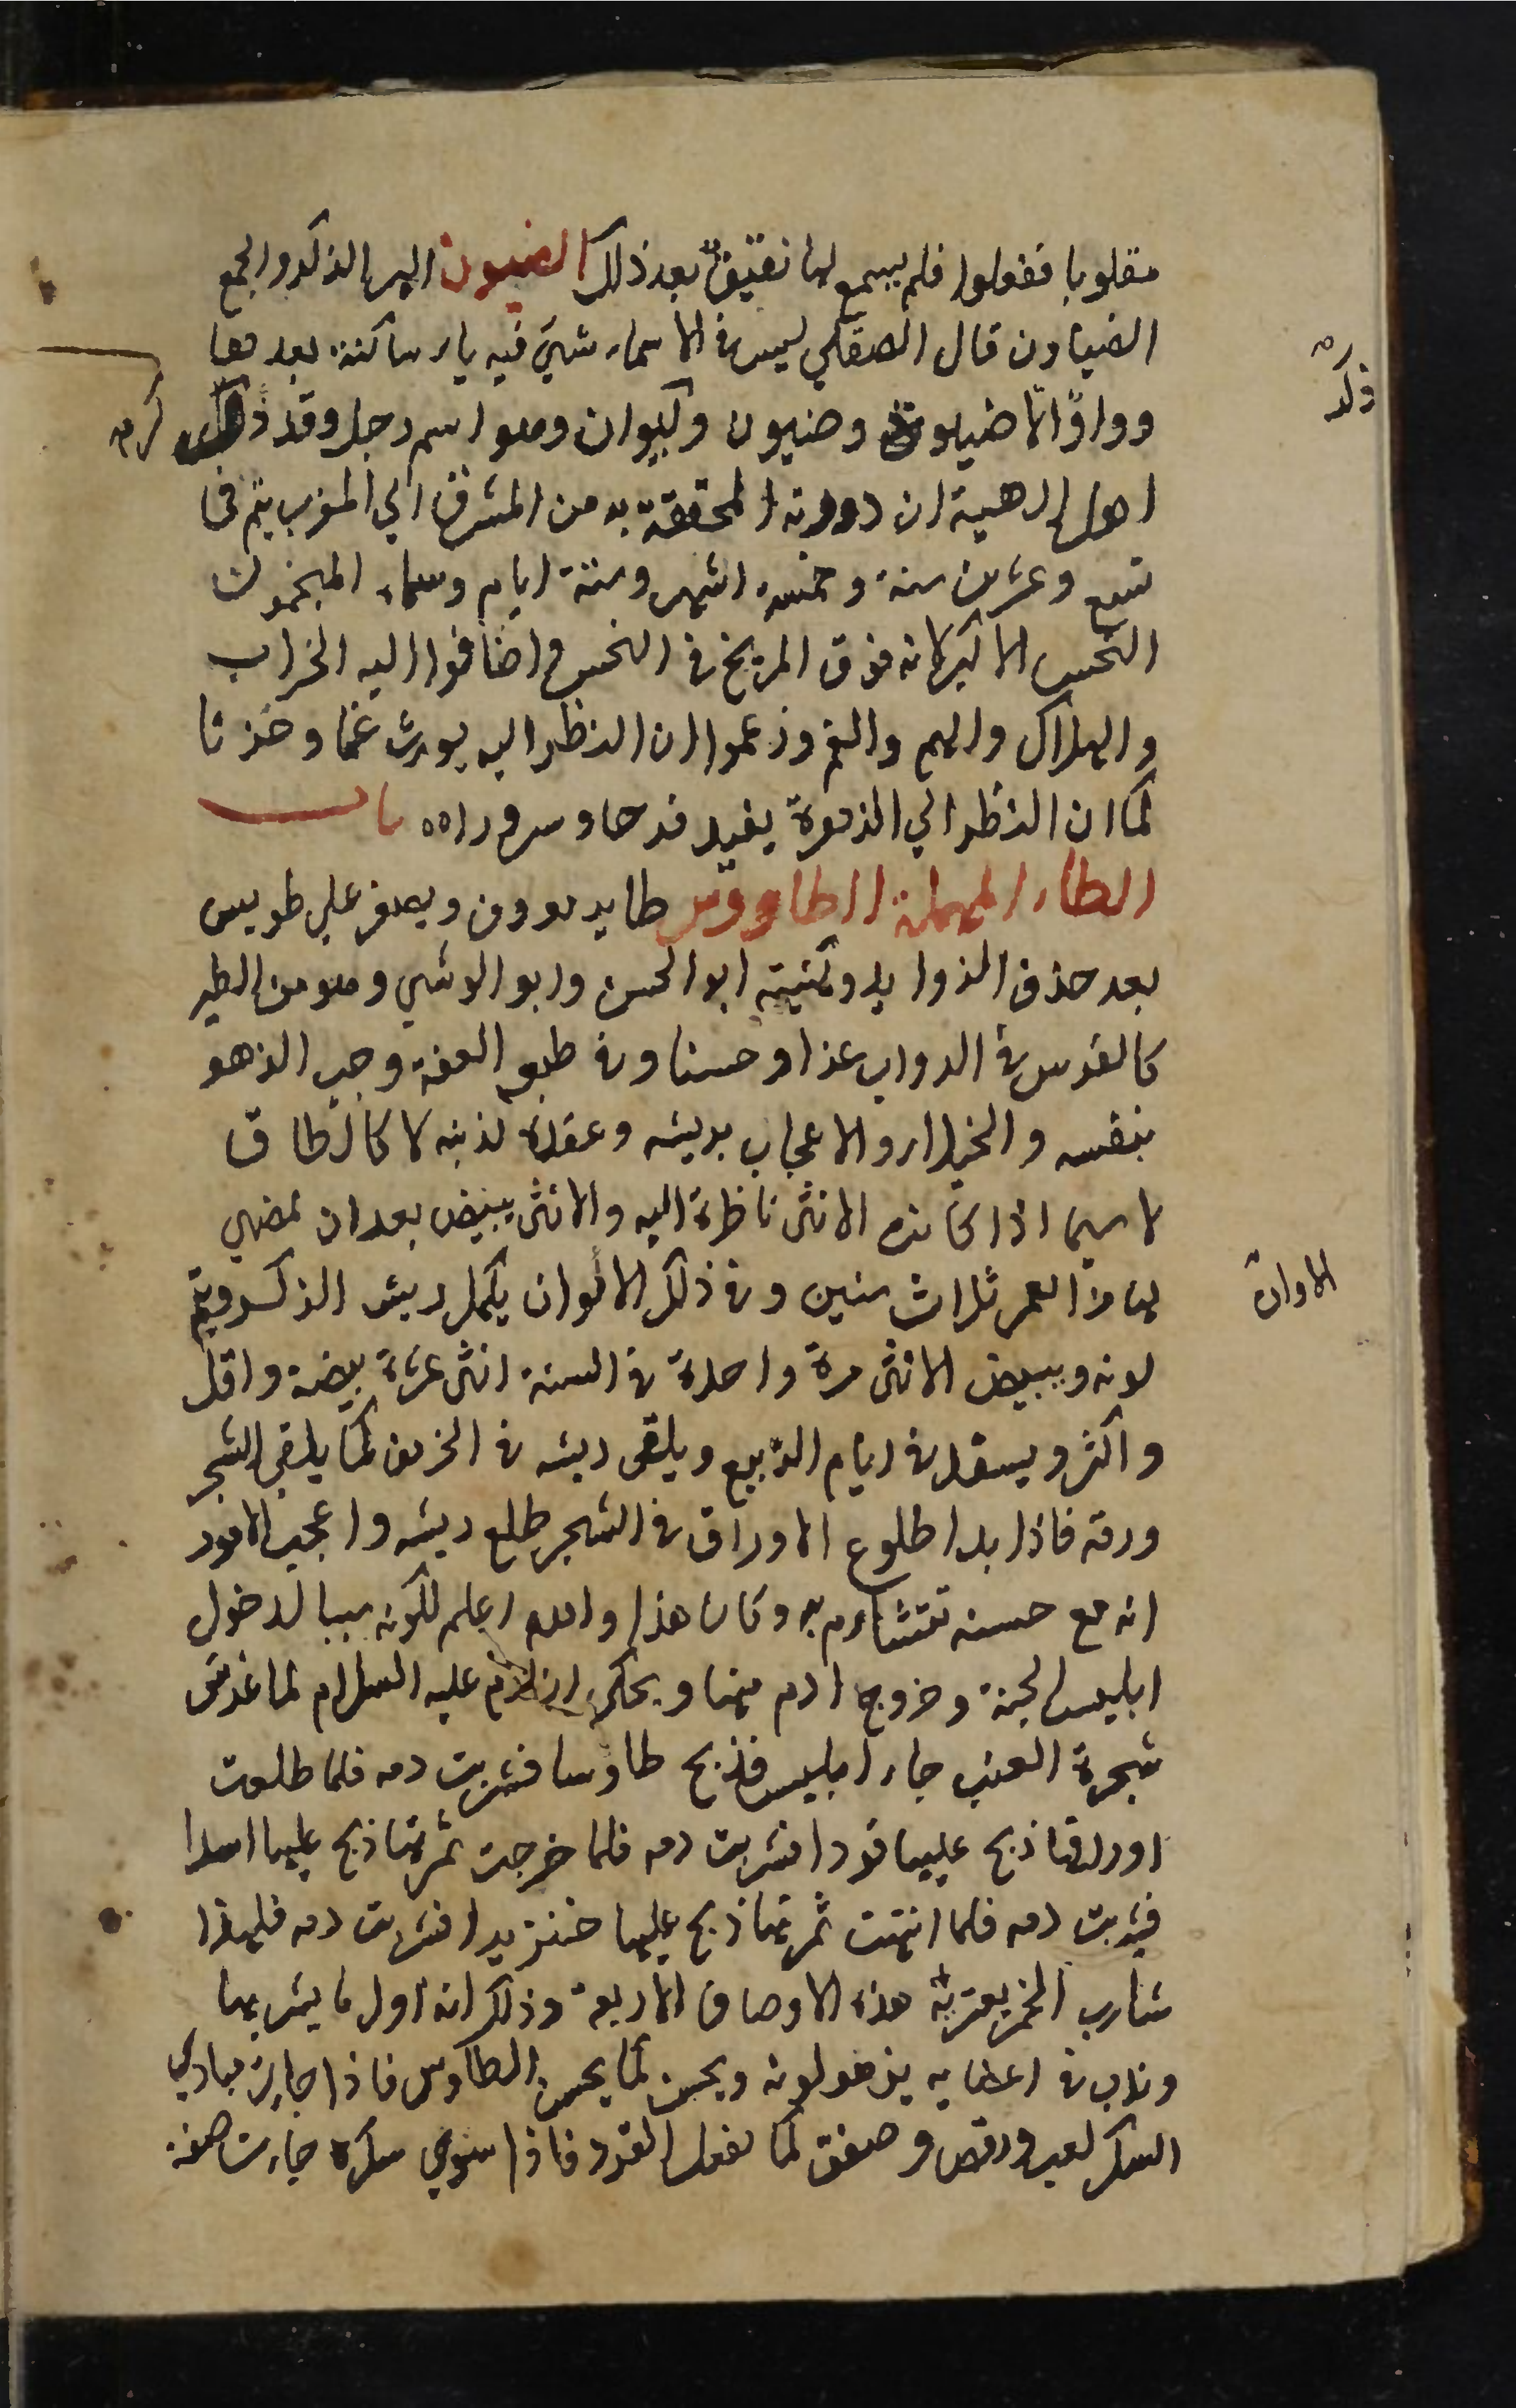 مقلوبا ففعلوا فلم يسمع لها نقيق بعد ذلك الضيون الهر الذكر والجمع
الضياون قال الصقلي ليس في الاسماء شيء فيه ياء ساكنة بعدها
وواوا الا ضيون وكيوان وهو اسم زحل وقد ذكر
ذكر
اهل الهيئة ان دورته المحققة به من المشرق الي المغرب يتم في
تسع وعشرين سنة وخمسة اشهر وستة ايام وسماه المنجمون
النحس الاكبر لانه فوق المريخ في النحس واضافوا اليه الخراب
والهلاك والهم والغم وزعموا ان النظر اليه يورث غما وحزنا
كما ان النظر الي الزهرة يفيد فرحا وسرورا ٥٥ باب
الطاء المهملة الطاووس طاير معروف ويصغر علي طويس
بعد حذف الزوايد وكنيته ابو الحسن وابو الوشي وهو من الطير
كالفرس في الدواب عزا وحسنا وفي طبعه العفة وحب الزهو
بنفسه والخيلاء والاعجاب بريشه وعقده لذنبه كالطاق
لا سيما اذا كانت الانثى ناظرة اليه والانثى تبيض بعد ان تمضي
لها من العمر ثلاث سنين وفي ذلك الالوان يكمل ريش الذكر ويتم
الاوان
لونه وتبيض الانثى مرة واحدة في السنة اثنى عشرة بيضة واقل
واكثر ويسفد في ايام الربيع ويلقى ريشه في الخريف كما يلقى الشجر
ورقه فاذا بدا طلوع الاوراق في الشجر طلع ريشه واعجب الامور
انه مع حسنه يتشاءم به وكان هذا والله اعلم لكونه سببا لدخول
ابليس الجنة وخروج ادم منها ويحكى ان ادم عليه السلام لما غرس
شجرة العنب جاء ابليس فذبح طاوسا فشربت دمه فلما طلعت
اوراقها ذبح عليها قردا فشربت دمه فلما خرجت ثمرتها ذبح عليها اسدا
فشربت دمه فلما انتهت ثمرتها ذبح عليها خنزيرا فشربت دمه فلهذا
شارب الخمر يعتريه هذه الاوصاف الاربعة وذلك انه اول ما يشربها
وتدب في اعضايه يزهو لونه ويحسن كما يحسن الطاوس فاذا جاءت مبادي
السكر لعب ورقص وصفق كما يفعل القرد فاذا قوي سكره جاءت صفة